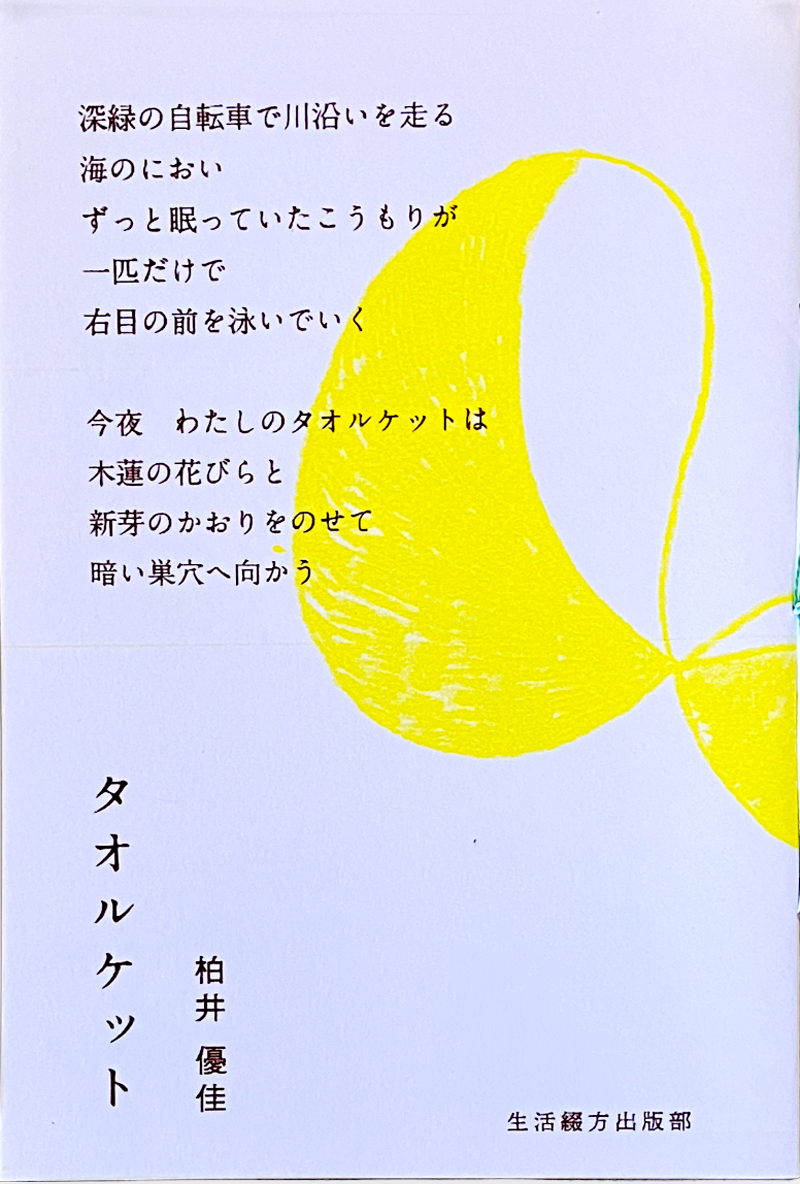 深緑の自転車で川沿いを走る
海のにおい
ずっと眠っていたこうもりが
一匹だけで
右目の前を泳いでいく
今夜　わたしのタオルケットは
木蓮の花びらと
新芽のかおりをのせて
暗い巣穴へ向かう
タオルケット
柏井 優佳
生活綴方出版部